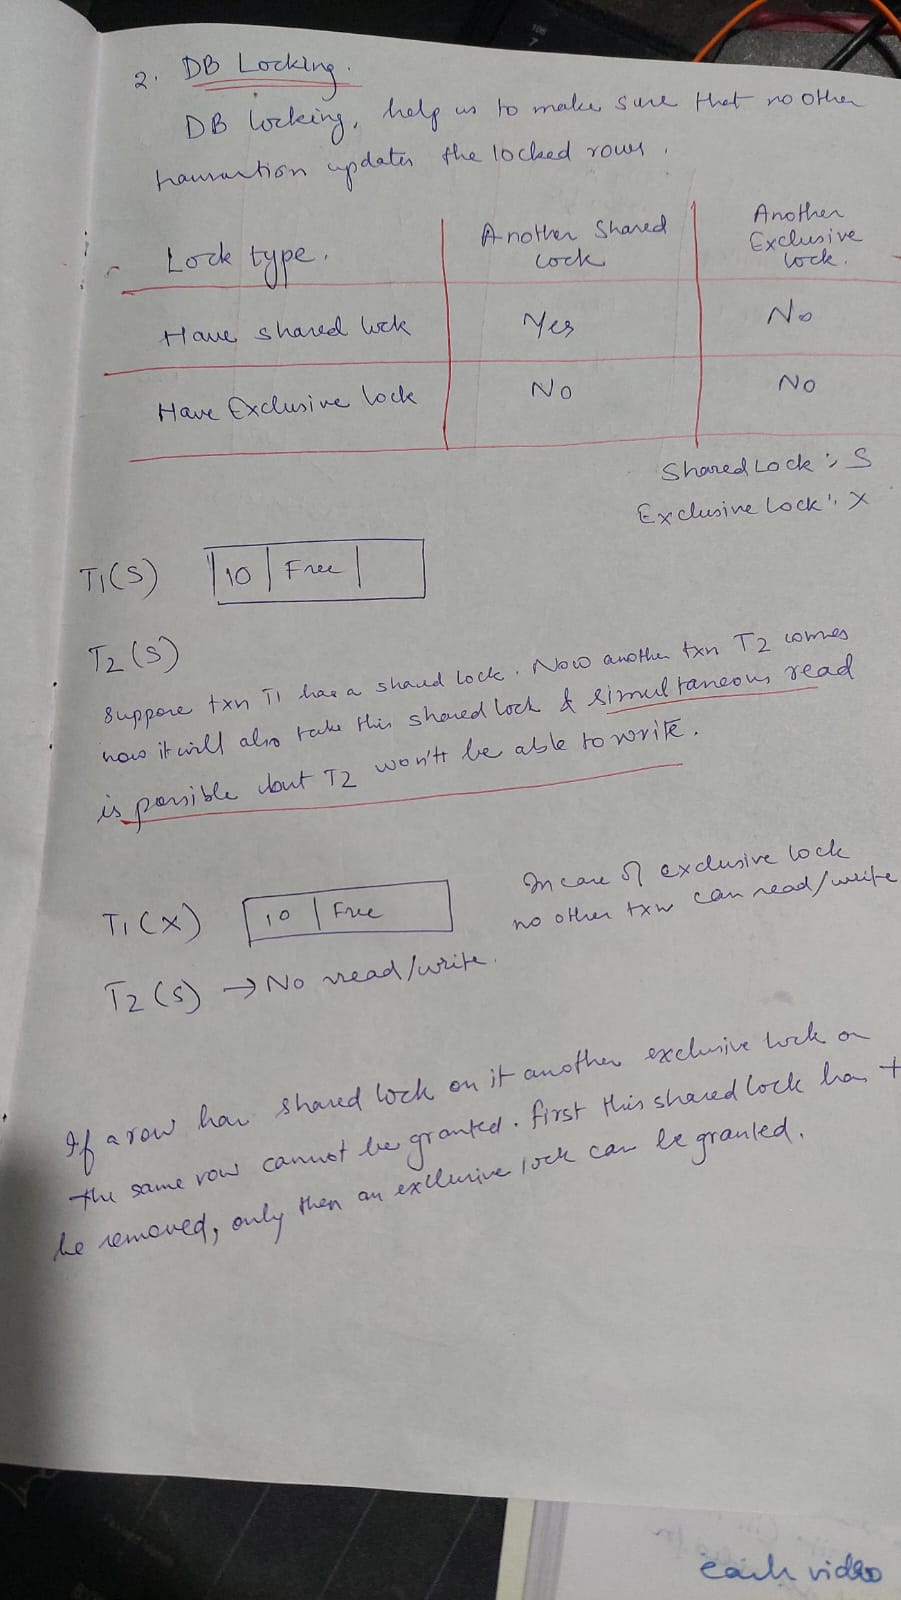 2. DB Locking.
DB locking, help us to make sure that no other
transaction updates the locked rows.
Lock type. Another Shared Lock Another Exclusive lock.
Have shared lock Yes No
Have Exclusive lock No No
Shared Lock : S
Exclusive Lock : X
T1(S) 10 Free
T2(S)
Suppose txn T1 has a shared lock. Now another txn T2 comes
now it will also take this shared lock & simultaneous read
is possible but T2 won'tt be able to write.
T1(X) 10 Free
In case of exclusive lock
no other txn can read/write
T2(S) → No read/write.
If a row has shared lock on it another exclusive lock on
the same row cannot be granted. first this shared lock has t
be removed, only then an exclusive lock can be granted.
each video